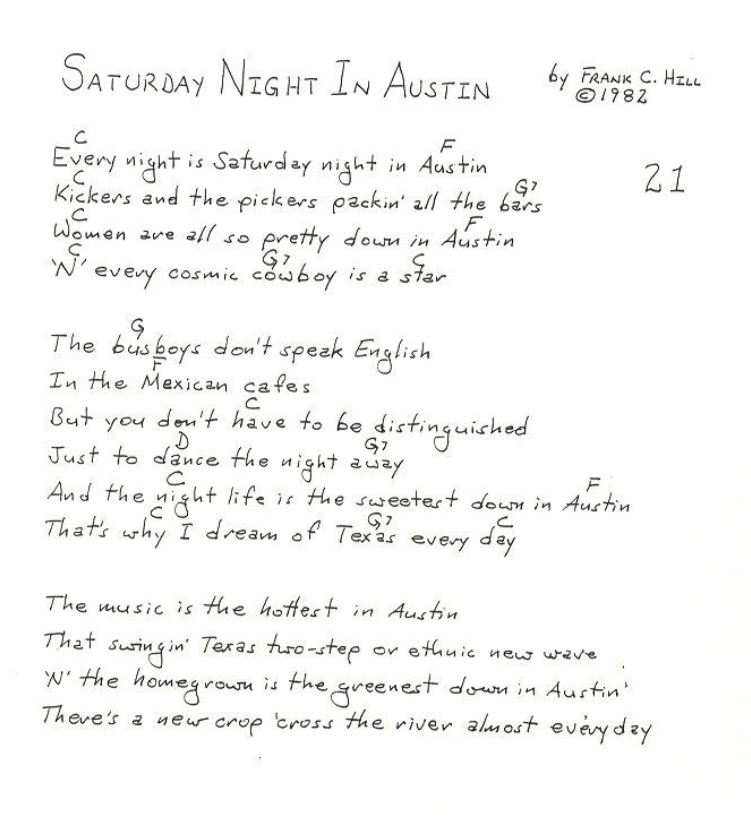 SATURDAY NIGHT IN AUSTIN by FRANK C. HILL
©1982
21
C F
Every night is Saturday night in Austin
C G7
Kickers and the pickers packin' all the bars
C F
Women are all so pretty down in Austin
C G7 C
'N' every cosmic cowboy is a star
G
The busboys don't speak English
F
In the Mexican cafes
C
But you don't have to be distinguished
D G7
Just to dance the night away
C F
And the night life is the sweetest down in Austin
C G7 C
That's why I dream of Texas every day
The music is the hottest in Austin
That swingin' Texas two-step or ethnic new wave
'N' the homegrown is the greenest down in Austin'
There's a new crop 'cross the river almost everyday